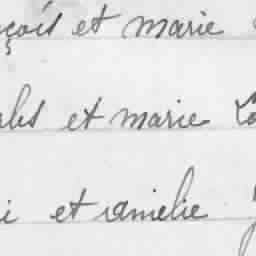 çois et marie
rles et marie
i et amelie